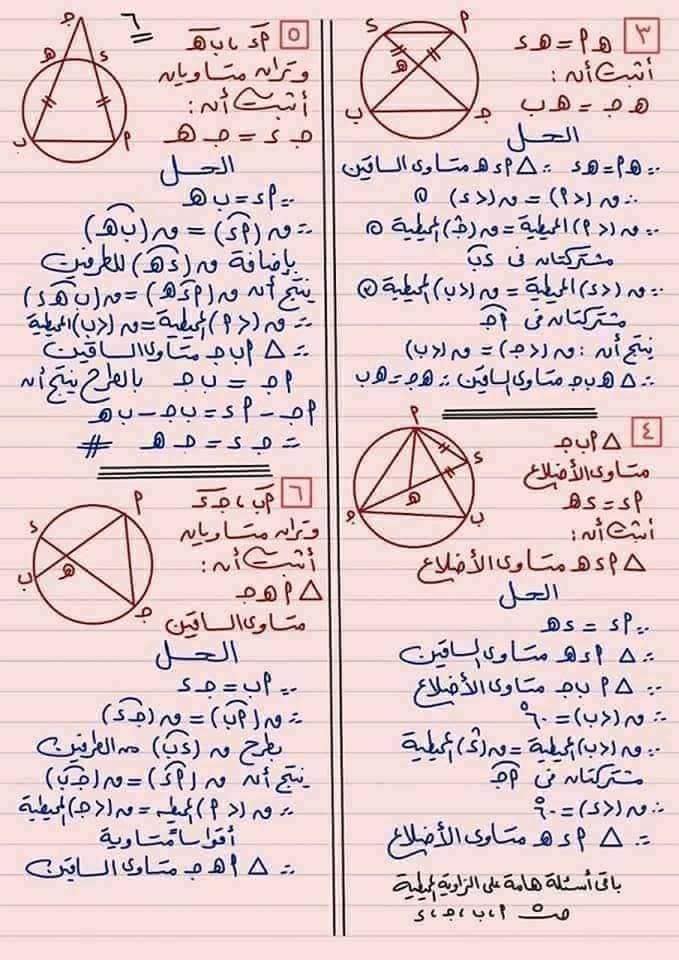 ٣
هـ م = هـ ء
أثبت أن :
هـ جـ = هـ ب
الحل
∵ هـ م = هـ ء ∴ △ م ء هـ متساوى الساقين
∴ ن (> م) = ن (> ء) ①
∵ ن (> م) المحيطية = ن (> جـ) المحيطية ②
مشتركتان فى ء ب
∵ ن (> ء) المحيطية = ن (> ب) المحيطية ③
مشتركتان فى م جـ
ينتج أن : ن (> جـ) = ن (> ب)
∴ △ هـ ب جـ متساوى الساقين ∴ هـ جـ = هـ ب
٤
△ م ب جـ
متساوى الأضلاع
م ء = ء هـ
أثبت أن :
△ م ء هـ متساوى الأضلاع
الحل
∵ م ء = ء هـ
∴ △ م ء هـ متساوى الساقين
∵ △ م ب جـ متساوى الأضلاع
∴ ن (> ب) = ٦٠°
∵ ن (> ب) المحيطية = ن (> ء) المحيطية
مشتركتان فى م جـ
∴ ن (> ء) = ٦٠°
∴ △ م ء هـ متساوى الأضلاع
باقى أسئلة هامة على الزاوية المحيطية
م ، ب ، جـ ، ء
٦
٥
م ء ، ب هـ
وتران متساويان
أثبت أن :
جـ ء = جـ هـ
الحل
∵ م ء = ب هـ
∴ ن (م ء) = ن (ب هـ)
بإضافة ن (ء هـ) للطرفين
ينتج أن ن (م ء هـ) = ن (ب هـ ء)
∴ ن (> م) المحيطية = ن (> ب) المحيطية
∴ △ م ب جـ متساوى الساقين
م جـ = ب جـ بالطرح ينتج أن
م جـ - م ء = ب جـ - ب هـ
∴ جـ ء = جـ هـ #
٦
م ب ، جـ ء
وتران متساويان
أثبت أن :
△ م هـ جـ
متساوى الساقين
الحل
∵ م ب = جـ ء
∴ ن (م ب) = ن (جـ ء)
بطرح ن (ء ب) من الطرفين
ينتج أن ن (م ء) = ن (جـ ب)
∴ ن (> م) المحيطية = ن (> جـ) المحيطية
أقواسا متساوية
∴ △ م هـ جـ متساوى الساقين